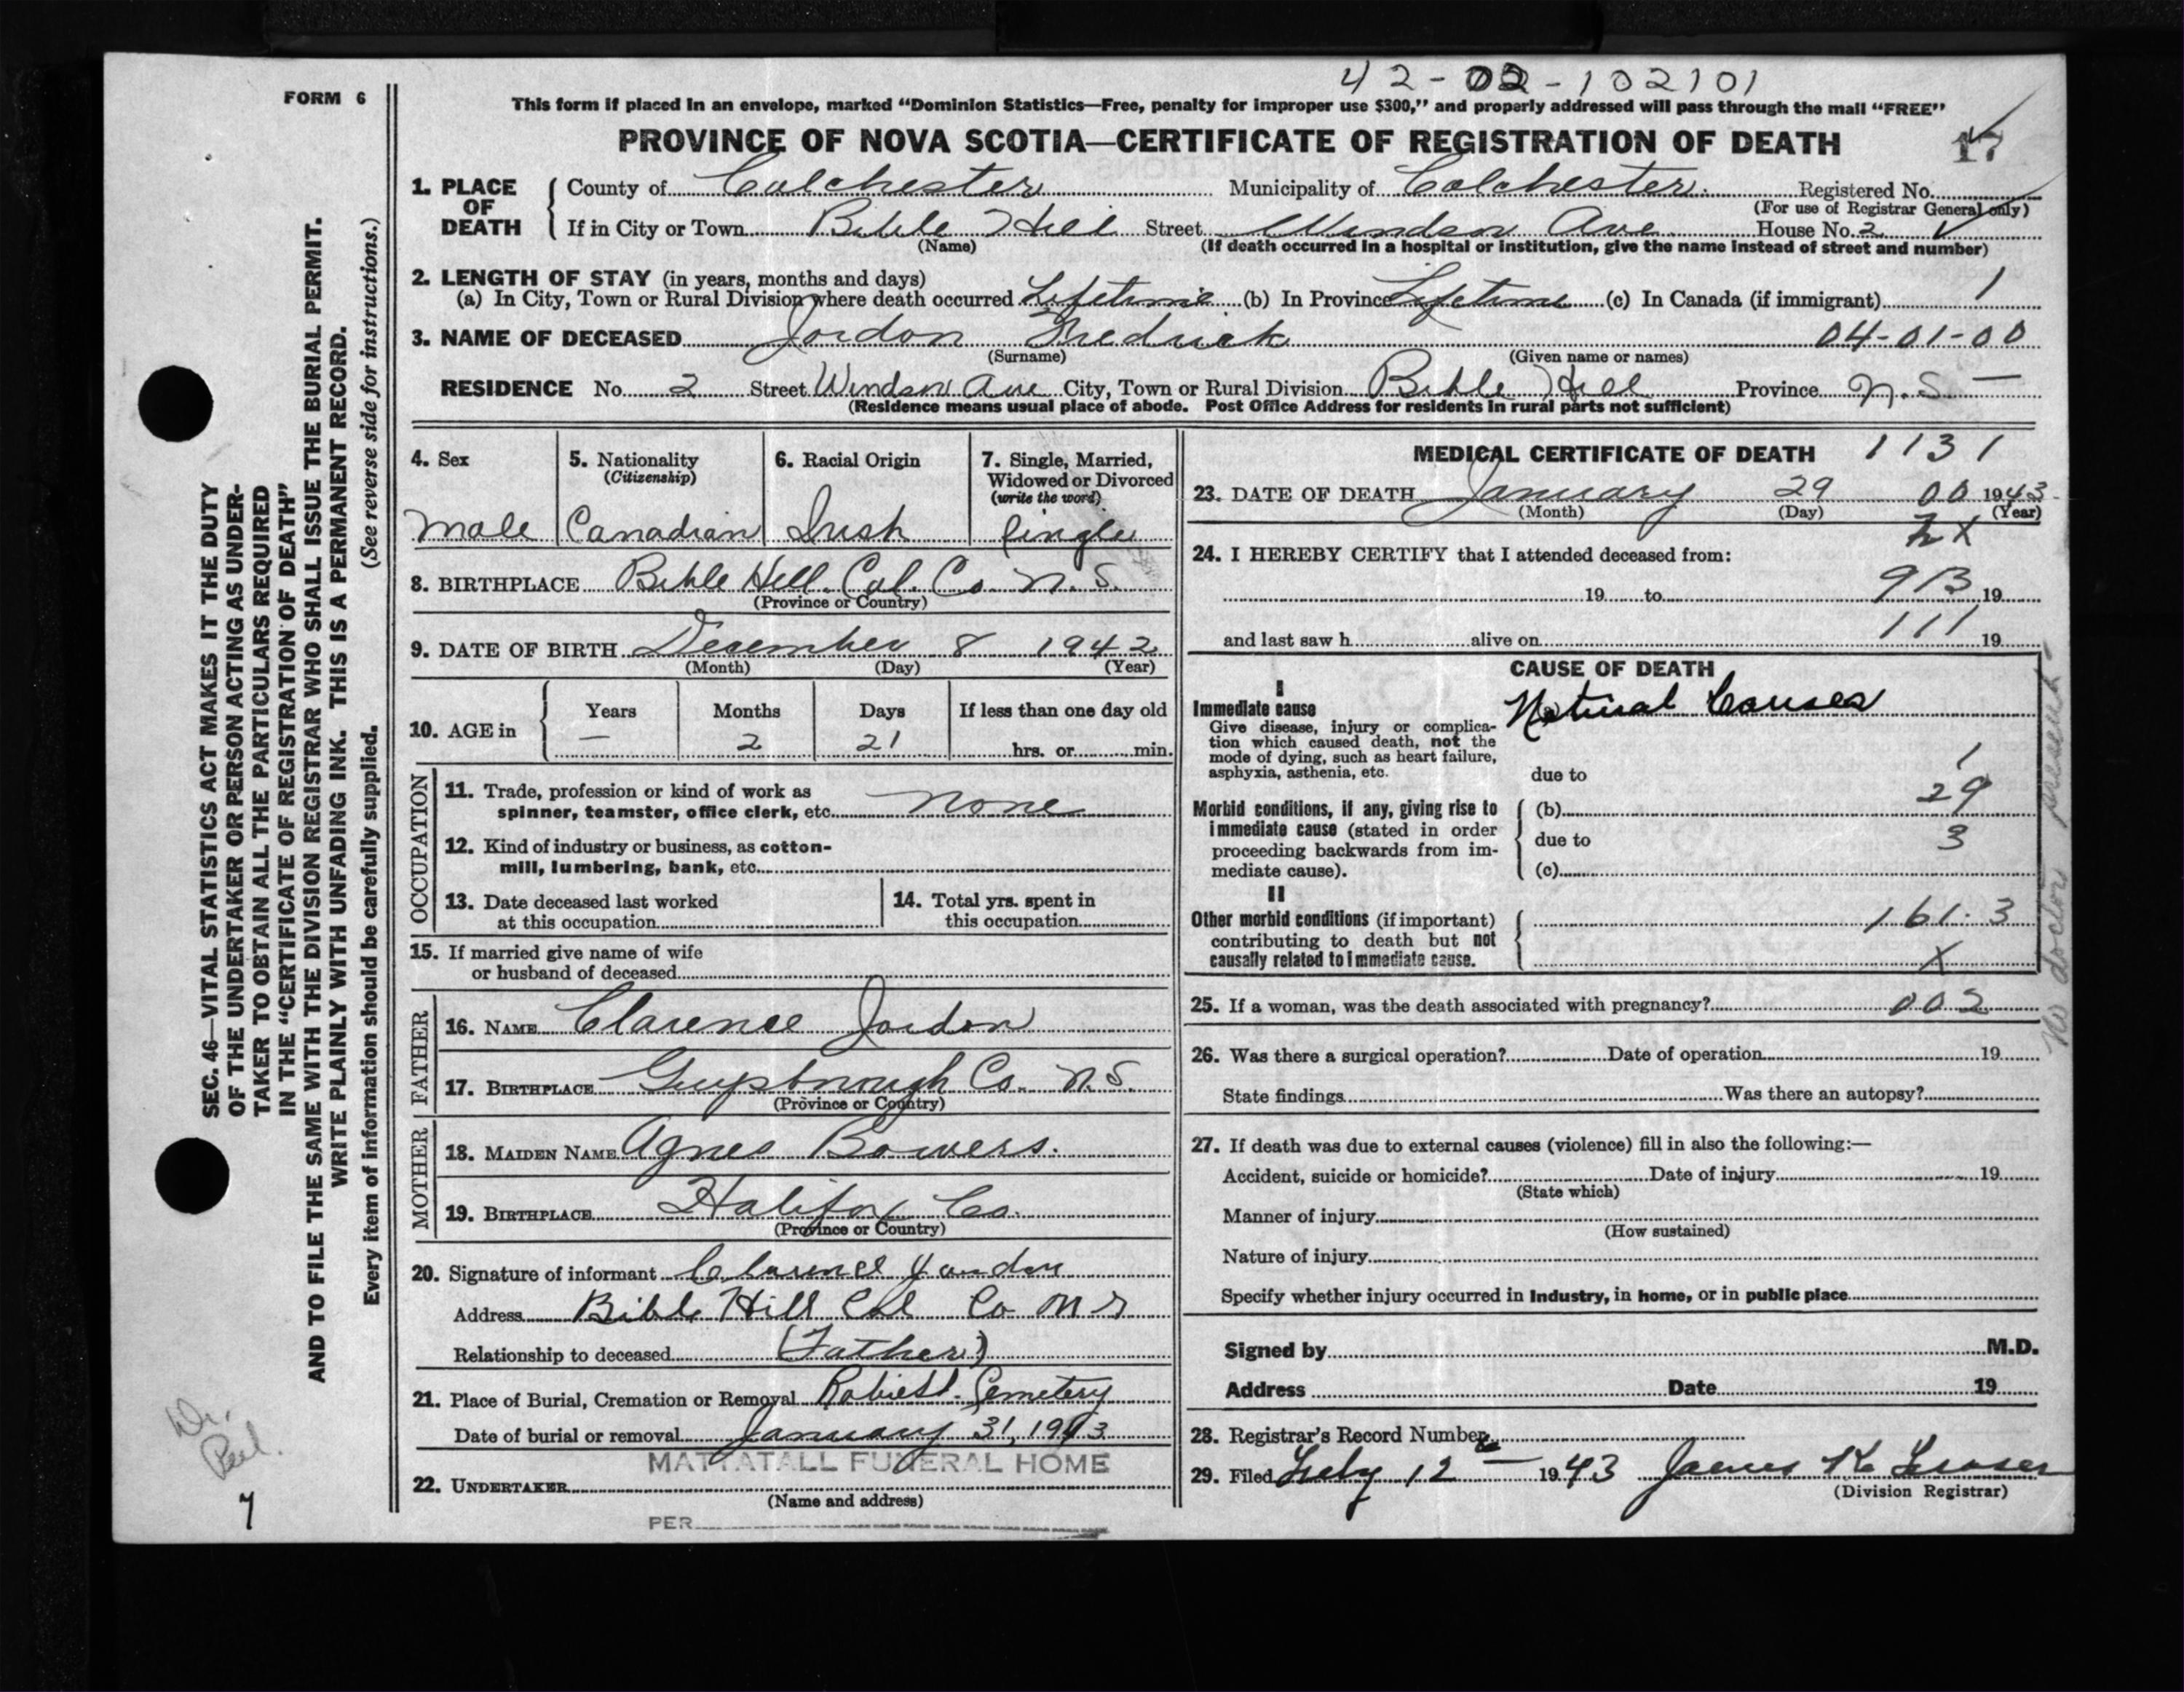 42-02-102101
FORM 6
This form if placed in an envelope, marked “Dominion Statistics—Free, penalty for improper use $300,” and properly addressed will pass through the mail “FREE”
PROVINCE OF NOVA SCOTIA—CERTIFICATE OF REGISTRATION OF DEATH 17
1. PLACE OF DEATH
County of Colchester Municipality of Colchester. Registered No.
(For use of Registrar General only)
If in City or Town Bible Hill Street Windsor Ave House No. 2
(Name) (If death occurred in a hospital or institution, give the name instead of street and number)
2. LENGTH OF STAY (in years, months and days)
(a) In City, Town or Rural Division where death occurred Lifetime (b) In Province Lifetime (c) In Canada (if immigrant) 1
3. NAME OF DECEASED Jordon Fredrick 04-01-00
(Surname) (Given name or names)
RESIDENCE No. 2 Street Windsor Ave City, Town or Rural Division Bible Hill Province N.S. —
(Residence means usual place of abode. Post Office Address for residents in rural parts not sufficient)
4. Sex
male
5. Nationality
(Citizenship)
Canadian
6. Racial Origin
Irish
7. Single, Married,
Widowed or Divorced
(write the word)
Single
8. BIRTHPLACE Bible Hill. Col. Co N.S.
(Province or Country)
9. DATE OF BIRTH December 8 1942
(Month) (Day) (Year)
10. AGE in
Years Months Days If less than one day old
— 2 21 hrs. or min.
OCCUPATION
11. Trade, profession or kind of work as
spinner, teamster, office clerk, etc. none
12. Kind of industry or business, as cotton-
mill, lumbering, bank, etc.
13. Date deceased last worked
at this occupation
14. Total yrs. spent in
this occupation
15. If married give name of wife
or husband of deceased
FATHER
16. NAME Clarence Jordon
17. BIRTHPLACE Guysbrough Co. N.S.
(Province or Country)
MOTHER
18. MAIDEN NAME Agnes Bowers.
19. BIRTHPLACE Halifax Co.
(Province or Country)
20. Signature of informant Clarence Jordon
Address Bible Hill Col Co N S
Relationship to deceased (Father)
21. Place of Burial, Cremation or Removal Cemetery
Date of burial or removal January 31, 1943
MATTATALL FUNERAL HOME
22. UNDERTAKER
(Name and address)
PER
MEDICAL CERTIFICATE OF DEATH 1131
23. DATE OF DEATH January 29 00 1943
(Month) (Day) (Year)
24. I HEREBY CERTIFY that I attended deceased from:
19 to 913 19
and last saw h alive on 111 19
CAUSE OF DEATH
I
Immediate cause Natural Causes
Give disease, injury or complica-
tion which caused death, not the
mode of dying, such as heart failure,
asphyxia, asthenia, etc.
due to 1
Morbid conditions, if any, giving rise to
immediate cause (stated in order
proceeding backwards from im-
mediate cause).
(b) 29
due to 3
(c)
II
Other morbid conditions (if important)
contributing to death but not
causally related to immediate cause.
161.3
X
No doctor present-
25. If a woman, was the death associated with pregnancy? 002
26. Was there a surgical operation? Date of operation 19
State findings Was there an autopsy?
27. If death was due to external causes (violence) fill in also the following:—
Accident, suicide or homicide? Date of injury 19
(State which)
Manner of injury
(How sustained)
Nature of injury
Specify whether injury occurred in Industry, in home, or in public place
Signed by M.D.
Address Date 19
28. Registrar's Record Number
29. Filed Feby 12 — 1943 James K Fraser
(Division Registrar)
SEC. 46—VITAL STATISTICS ACT MAKES IT THE DUTY
OF THE UNDERTAKER OR PERSON ACTING AS UNDER-
TAKER TO OBTAIN ALL THE PARTICULARS REQUIRED
IN THE “CERTIFICATE OF REGISTRATION OF DEATH”
AND TO FILE THE SAME WITH THE DIVISION REGISTRAR WHO SHALL ISSUE THE BURIAL PERMIT.
WRITE PLAINLY WITH UNFADING INK. THIS IS A PERMANENT RECORD.
Every item of information should be carefully supplied. (See reverse side for instructions.)
Dr.
7